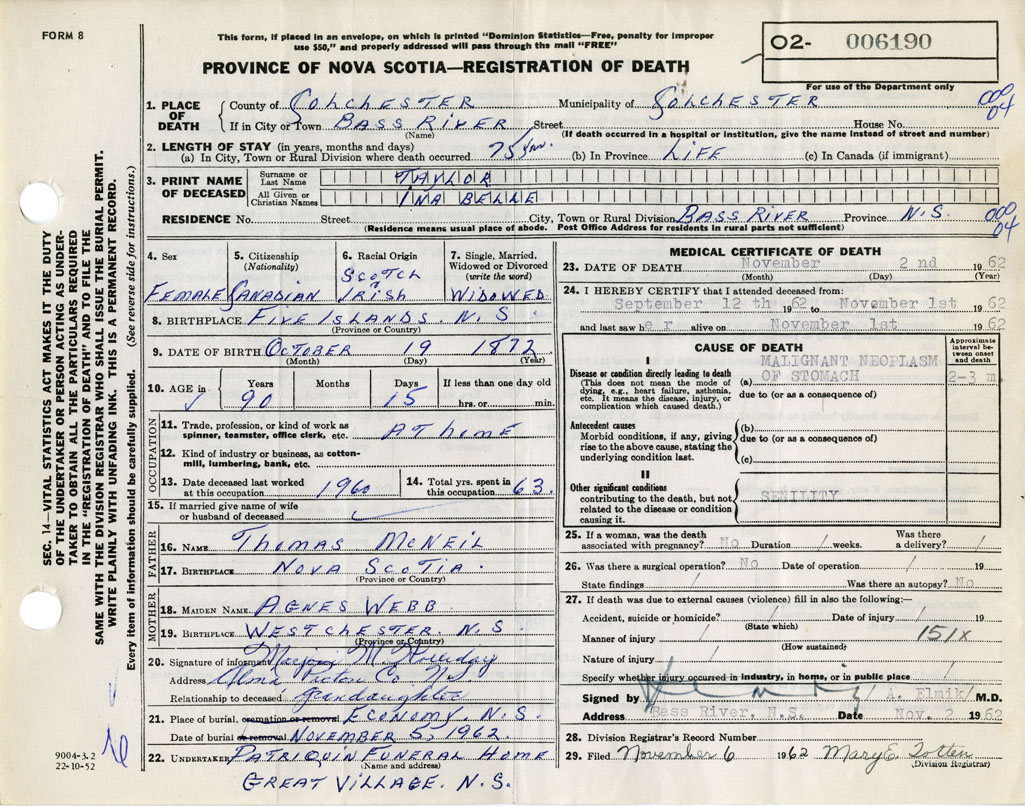 FORM 8
This form, if placed in an envelope, on which is printed "Dominion Statistics—Free, penalty for improper
use $50," and properly addressed will pass through the mail "FREE"
02- 006190
PROVINCE OF NOVA SCOTIA—REGISTRATION OF DEATH
For use of the Department only
1. PLACE OF DEATH County of Colchester Municipality of Colchester 000 04
If in City or Town Bass River Street House No.
(Name) (If death occurred in a hospital or institution, give the name instead of street and number)
2. LENGTH OF STAY (in years, months and days)
(a) In City, Town or Rural Division where death occurred 75 yrs. (b) In Province Life (c) In Canada (if immigrant)
3. PRINT NAME OF DECEASED Surname or Last Name TAYLOR
All Given or Christian Names INA BELLE
RESIDENCE No. Street City, Town or Rural Division Bass River Province N.S. 000 04
(Residence means usual place of abode. Post Office Address for residents in rural parts not sufficient)
4. Sex Female
5. Citizenship (Nationality) Canadian
6. Racial Origin Scotch Irish
7. Single, Married, Widowed or Divorced (write the word) Widowed
8. BIRTHPLACE Five Islands. N.S.
(Province or Country)
9. DATE OF BIRTH October 19 1872
(Month) (Day) (Year)
10. AGE in Years Months Days If less than one day old
90 15 hrs. or min.
OCCUPATION
11. Trade, profession, or kind of work as spinner, teamster, office clerk, etc. At home
12. Kind of industry or business, as cotton-mill, lumbering, bank, etc.
13. Date deceased last worked at this occupation 1960
14. Total yrs. spent in this occupation 63.
15. If married give name of wife or husband of deceased
FATHER
16. NAME Thomas McNeil
17. BIRTHPLACE Nova Scotia.
(Province or Country)
MOTHER
18. MAIDEN NAME Agnes Webb
19. BIRTHPLACE Westchester. N.S
(Province or Country)
20. Signature of informant M.
Address Alma Pictou Co. N.S.
Relationship to deceased Grandaughter
21. Place of burial, cremation or removal Economy. N.S.
Date of burial or removal November 5, 1962.
22. UNDERTAKER Patriquin Funeral Home
(Name and address)
Great Village. N.S.
MEDICAL CERTIFICATE OF DEATH
23. DATE OF DEATH November 2 nd 1962
(Month) (Day) (Year)
24. I HEREBY CERTIFY that I attended deceased from:
September 12 th 1962 to November 1st 1962
and last saw her alive on November 1st 1962
CAUSE OF DEATH
Approximate interval between onset and death
I
Disease or condition directly leading to death
(This does not mean the mode of dying, e.g., heart failure, asthenia, etc. It means the disease, injury, or complication which caused death.)
(a) MALIGNANT NEOPLASM OF STOMACH 2-3 m.
due to (or as a consequence of)
Antecedent causes
Morbid conditions, if any, giving rise to the above cause, stating the underlying condition last.
(b)
due to (or as a consequence of)
(c)
II
Other significant conditions
contributing to the death, but not related to the disease or condition causing it.
SENILITY
25. If a woman, was the death associated with pregnancy? No Duration / weeks. Was there a delivery? /
26. Was there a surgical operation? No Date of operation / 19
State findings / Was there an autopsy? No
27. If death was due to external causes (violence) fill in also the following:—
Accident, suicide or homicide? / Date of injury / 19
(State which)
Manner of injury / 151X
(How sustained)
Nature of injury /
Specify whether injury occurred in industry, in home, or in public place /
Signed by / A. Elmik / M.D.
Address Bass River, N.S. Date Nov. 2 1962
28. Division Registrar's Record Number
29. Filed November 6 1962 Mary E. Totten
(Division Registrar)
SEC. 14—VITAL STATISTICS ACT MAKES IT THE DUTY
OF THE UNDERTAKER OR PERSON ACTING AS UNDER-
TAKER TO OBTAIN ALL THE PARTICULARS REQUIRED
IN THE "REGISTRATION OF DEATH" AND TO FILE THE
SAME WITH THE DIVISION REGISTRAR WHO SHALL ISSUE THE BURIAL PERMIT.
WRITE PLAINLY WITH UNFADING INK. THIS IS A PERMANENT RECORD.
Every item of information should be carefully supplied. (See reverse side for instructions.)
9004-3.2
22-10-52